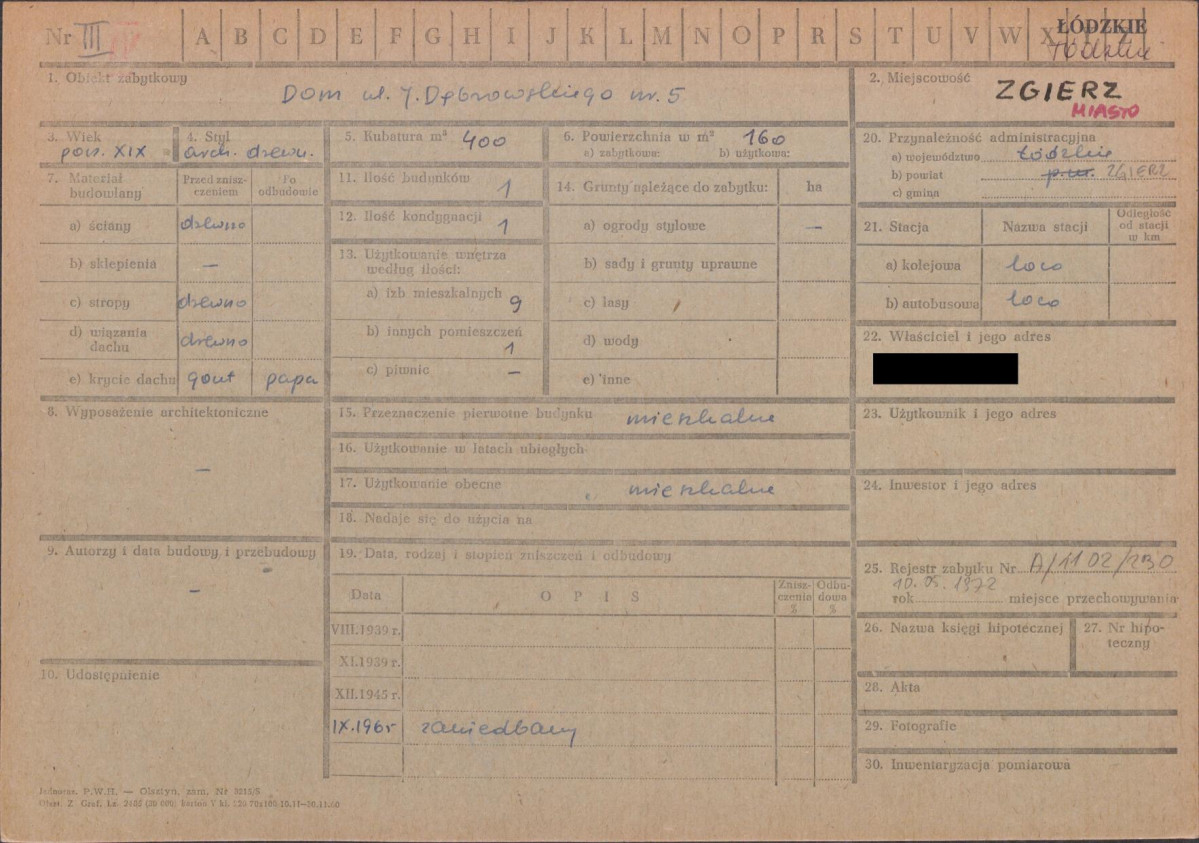 Nr III A B C D E F G H I J K L M N O P R S T U V W X ŁÓDZKIE
łódzkie
1. Obiekt zabytkowy
Dom ul. J. Dąbrowskiego nr. 5
2. Miejscowość
ZGIERZ
MIASTO
3. Wiek
poł. XIX
4. Styl
arch. drewn.
5. Kubatura m³ 400
6. Powierzchnia w m² 160
a) zabytkowa: b) użytkowa:
7. Materiał budowlany
Przed znisz-
czeniem
Po
odbudowie
a) ściany drewno
b) sklepienia —
c) stropy drewno
d) wiązania
dachu drewno
e) krycie dachu gont papa
8. Wyposażenie architektoniczne
—
9. Autorzy i data budowy i przebudowy
—
10. Udostępnienie
11. Ilość budynków 1
12. Ilość kondygnacji 1
13. Użytkowanie wnętrza
według ilości:
a) izb mieszkalnych 9
b) innych pomieszczeń
1
c) piwnic —
14. Grunty należące do zabytku: ha
a) ogrody stylowe —
b) sady i grunty uprawne
c) lasy
d) wody
e) inne
15. Przeznaczenie pierwotne budynku mieszkalne
16. Użytkowanie w latach ubiegłych
17. Użytkowanie obecne mieszkalne
18. Nadaje się do użycia na
19. Data, rodzaj i stopień zniszczeń i odbudowy
Data OPIS
Znisz-
czenia
%
Odbu-
dowa
%
VIII.1939 r.
XI.1939 r.
XII.1945 r.
IX.1965 zaniedbany
20. Przynależność administracyjna
a) województwo łódzkie
b) powiat p.w. ZGIERZ
c) gmina
21. Stacja Nazwa stacji
Odległość
od stacji
w km
a) kolejowa loco
b) autobusowa loco
22. Właściciel i jego adres
23. Użytkownik i jego adres
24. Inwestor i jego adres
25. Rejestr zabytku Nr A/1102/230
10.05.1972
rok miejsce przechowywania
26. Nazwa księgi hipotecznej
27. Nr hipo-
teczny
28. Akta
29. Fotografie
30. Inwentaryzacja pomiarowa
P.W.H. — Olsztyn, zam. Nr 3215/S